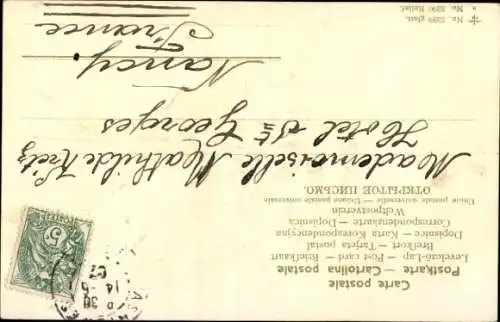 Carte postale
Postkarte — Cartolina postale
Levelező-Lap — Post card — Briefkaart
Brefkort — Tarjeta postal
Dopisnice — Karta Korespondencyjna
Correspondenzkarte — Dopisnica
Weltpostverein
Union postale universelle — Unione postale universale
ОТКРЫТОЕ ПИСЬМО.
Mademoiselle Mathilde
Hotel St Georges
Nancy.
France
No. 5299 glatt.
" No. 5290 Relief.
5
14-6
07